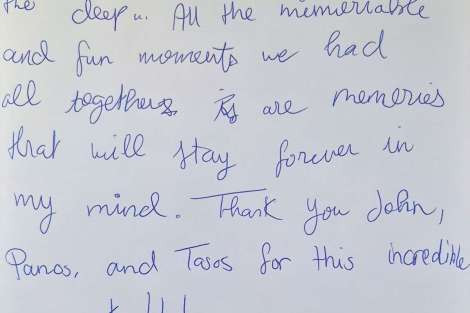 the deep". All the memoriable
and fun moments we had
all together, are memeries
that will stay forever in
my mind. Thank you John,
Panos, and Tasos for this incredible